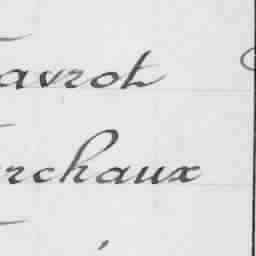 avrot
rchaux